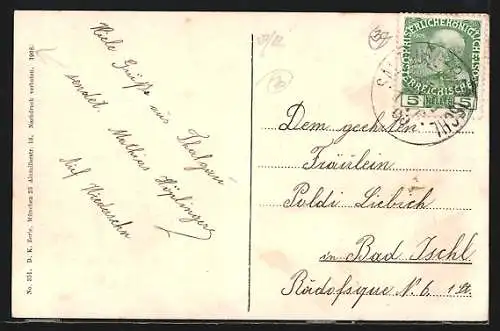 Viele Grüße aus Thalgau
sendet. Mathias Höplinger
Auf Wiedersehn
No. 351. D. K. Zerle, München 23 Ainmillerstr. 14. Nachdruck verboten. 1908.
39
KAISERLICHEKÖNIGLICHE
ÖSTERREICHISCHE
5 HELLER 5
Dem geehrten
Fräulein
Poldi Liebich
in Bad Ischl
N. 6. 1 St.